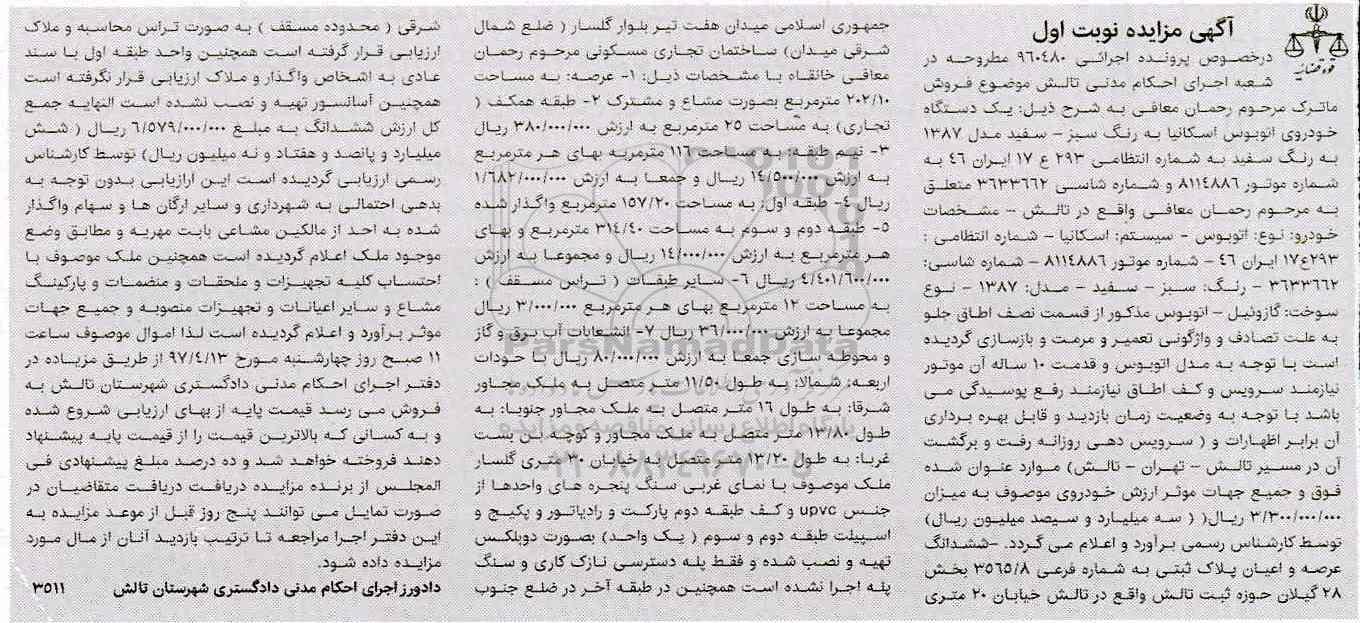 آگهی مزایده نوبت اول
قوه قضائیه
درخصوص پرونده اجرائی ۹۶۰۴۸۰ مطروحه در
شعبه اجرای احکام مدنی تالش موضوع فروش
ماترک مرحوم رحمان معافی به شرح ذیل: یک دستگاه
خودروی اتوبوس اسکانیا به رنگ سبز – سفید مدل ۱۳۸۷
به رنگ سفید به شماره انتظامی ۲۹۳ ع ۱۷ ایران ۴۶ به
شماره موتور ۸۱۱۴۸۸۶ و شماره شاسی ۳۶۳۳۶۶۲ متعلق
به مرحوم رحمان معافی واقع در تالش – مشخصات
خودرو: نوع: اتوبوس – سیستم: اسکانیا – شماره انتظامی :
۲۹۳ع۱۷ ایران ۴۶ – شماره موتور ۸۱۱۴۸۸۶ – شماره شاسی:
۳۶۳۳۶۶۲ – رنگ: سبز – سفید – مدل: ۱۳۸۷ – نوع
سوخت: گازوئیل – اتوبوس مذکور از قسمت نصف اطاق جلو
به علت تصادف و واژگونی تعمیر و مرمت و بازسازی گردیده
است با توجه به مدل اتوبوس و قدمت ۱۰ ساله آن موتور
نیازمند سرویس و کف اطاق نیازمند رفع پوسیدگی می
باشد با توجه به وضعیت زمان بازدید و قابل بهره برداری
آن برابر اظهارات و ( سرویس دهی روزانه رفت و برگشت
آن در مسیر تالش – تهران – تالش) موارد عنوان شده
فوق و جمیع جهات موثر ارزش خودروی موصوف به میزان
۳/۳۰۰/۰۰۰/۰۰۰ ریال( ( سه میلیارد و سیصد میلیون ریال)
توسط کارشناس رسمی برآورد و اعلام می گردد. –ششدانگ
عرصه و اعیان پلاک ثبتی به شماره فرعی ۳۵۶۵/۸ بخش
۲۸ گیلان حوزه ثبت تالش واقع در تالش خیابان ۲۰ متری
جمهوری اسلامی میدان هفت تیر بلوار گلسار ( ضلع شمال
شرقی میدان) ساختمان تجاری مسکونی مرحوم رحمان
معافی خانقاه با مشخصات ذیل: ۱- عرصه: به مساحت
۲۰۲/۱۰ مترمربع بصورت مشاع و مشترک ۲- طبقه همکف (
تجاری) به مساحت ۲۵ مترمربع به ارزش ۳۸۰/۰۰۰/۰۰۰ ریال
۳- نیم طبقه: به مساحت ۱۱۶ مترمربه بهای هر مترمربع
به ارزش ۱۴/۵۰۰/۰۰۰ ریال و جمعا به ارزش ۱/۶۸۲/۰۰۰/۰۰۰
ریال ۴- طبقه اول: به مساحت ۱۵۷/۲۰ مترمربع واگذار شده
۵- طبقه دوم و سوم به مساحت ۳۱۴/۴۰ مترمربع و بهای
هر مترمربع به ارزش ۱۴/۰۰۰/۰۰۰ ریال و مجموعا به ارزش
۴/۴۰۱/۶۰۰/۰۰۰ ریال ۶- سایر طبقات ( تراس مسقف ) :
به مساحت ۱۲ مترمربع بهای هر مترمربع ۳/۰۰۰/۰۰۰ ریال
مجموعا به ارزش ۳۶/۰۰۰/۰۰۰ ریال ۷- انشعابات آب برق و گاز
و محوطه سازی جمعا به ارزش ۸۰/۰۰۰/۰۰۰ ریال با حدودات
اربعه: شمالا: به طول ۱۱/۵۰ متر متصل به ملک مجاور
شرقا: به طول ۱۶ متر متصل به ملک مجاور جنوبا: به
طول ۱۳/۸۰ متر متصل به ملک مجاور و کوچه بن بست
غربا: به طول ۱۳/۲۰ متر متصل به خیابان ۳۰ متری گلسار
ملک موصوف با نمای غربی سنگ پنجره های واحدها از
جنس upvc و کف طبقه دوم پارکت و رادیاتور و پکیج و
اسپیلت طبقه دوم و سوم ( یک واحد) بصورت دوبلکس
تهیه و نصب شده و فقط پله دسترسی نازک کاری و سنگ
پله اجرا نشده است همچنین در طبقه آخر در ضلع جنوب
شرقی ( محدوده مسقف ) به صورت تراس محاسبه و ملاک
ارزیابی قرار گرفته است همچنین واحد طبقه اول با سند
عادی به اشخاص واگذار و ملاک ارزیابی قرار نگرفته است
همچنین آسانسور تهیه و نصب نشده است النهایه جمع
کل ارزش ششدانگ به مبلغ ۶/۵۷۹/۰۰۰/۰۰۰ ریال ( شش
میلیارد و پانصد و هفتاد و نه میلیون ریال) توسط کارشناس
رسمی ارزیابی گردیده است این ارازیابی بدون توجه به
بدهی احتمالی به شهرداری و سایر ارگان ها و سهام واگذار
شده به احد از مالکین مشاعی بابت مهریه و مطابق وضع
موجود ملک اعلام گردیده است همچنین ملک موصوف با
احتساب کلیه تجهیزات و ملحقات و منضمات و پارکینگ
مشاع و سایر اعیانات و تجهیزات منصوبه و جمیع جهات
موثر برآورد و اعلام گردیده است لذا اموال موصوف ساعت
۱۱ صبح روز چهارشنبه مورخ ۹۷/۴/۱۳ از طریق مزیاده در
دفتر اجرای احکام مدنی دادگستری شهرستان تالش به
فروش می رسد قیمت پایه از بهای ارزیابی شروع شده
و به کسانی که بالاترین قیمت را از قیمت پایه پیشنهاد
دهند فروخته خواهد شد و ده درصد مبلغ پیشنهادی فی
المجلس از برنده مزایده دریافت دریافت متقاضیان در
صورت تمایل می توانند پنج روز قبل از موعد مزایده به
این دفتر اجرا مراجعه تا ترتیب بازدید آنان از مال مورد
مزایده داده شود.
دادورز اجرای احکام مدنی دادگستری شهرستان تالش ۳۵۱۱
ParsNamadData
پایگاه اطلاع رسانی مناقصه و مزایده